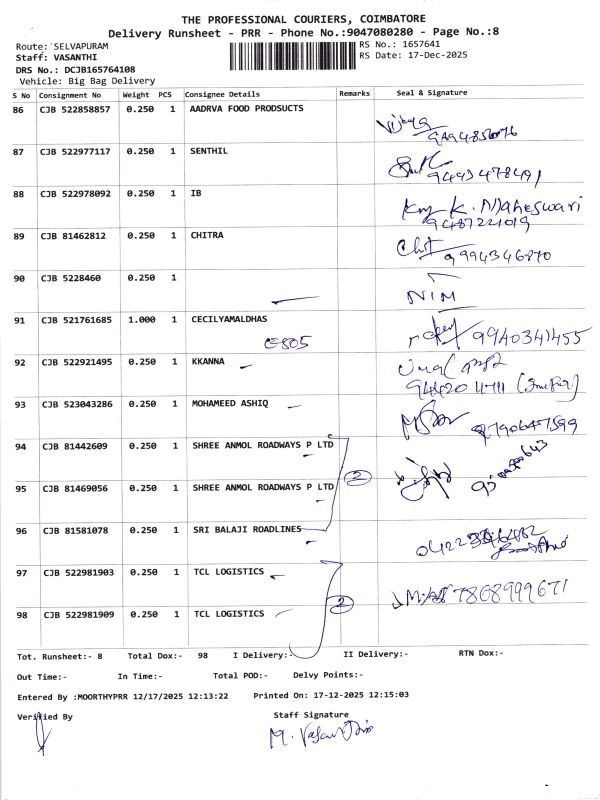 THE PROFESSIONAL COURIERS, COIMBATORE
Delivery Runsheet - PRR - Phone No.:9047080280 - Page No.:8
Route: SELVAPURAM RS No.: 1657641
Staff: VASANTHI RS Date: 17-Dec-2025
DRS No.: DCJB165764108
Vehicle: Big Bag Delivery
S No Consignment No Weight PCS Consignee Details Remarks Seal & Signature
86 CJB 522858857 0.250 1 AADRVA FOOD PRODSUCTS Vijaya
87 CJB 522977117 0.250 1 SENTHIL 9493478491
88 CJB 522978092 0.250 1 IB K. Maheswari
9487221019
89 CJB 81462812 0.250 1 CHITRA 9994346870
90 CJB 5228460 0.250 1 NIM
91 CJB 521761685 1.000 1 CECILYAMALDHAS 9940341455
C-805
92 CJB 522921495 0.250 1 KKANNA
93 CJB 523043286 0.250 1 MOHAMEED ASHIQ
94 CJB 81442609 0.250 1 SHREE ANMOL ROADWAYS P LTD
2
95 CJB 81469056 0.250 1 SHREE ANMOL ROADWAYS P LTD
96 CJB 81581078 0.250 1 SRI BALAJI ROADLINES
97 CJB 522981903 0.250 1 TCL LOGISTICS 7868999671
2
98 CJB 522981909 0.250 1 TCL LOGISTICS
Tot. Runsheet:- 8 Total Dox:- 98 I Delivery:- II Delivery:- RTN Dox:-
Out Time:- In Time:- Total POD:- Delvy Points:-
Entered By :MOORTHYPRR 12/17/2025 12:13:22 Printed On: 17-12-2025 12:15:03
Verified By Staff Signature